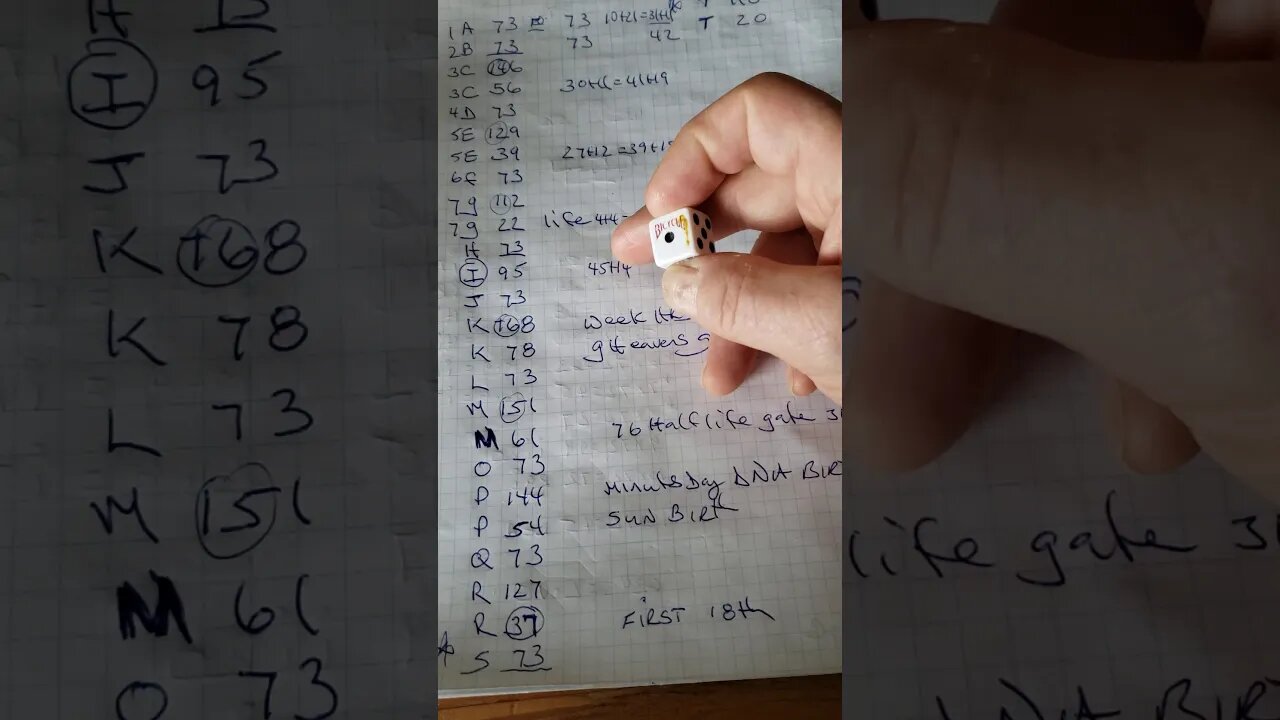 1A 73 73 10+21=31+11
2B 73 73 42 T 20
3C 146
3C 56 30+11=41+9
4D 73
5E 129
5E 39 27+12=39+15
6F 73
7g 112
7g 22 life 4+4=
H 73
I 95 45+4
J 73
K 168 week
K 78 gHeavers g
L 73
M 151
M 61 76 Half life gate 31
O 73
P 144 MinutsDay DNA BIRT
P 54 SUN BIRth
Q 73
R 127
R 37 FIRST 18th
S 73